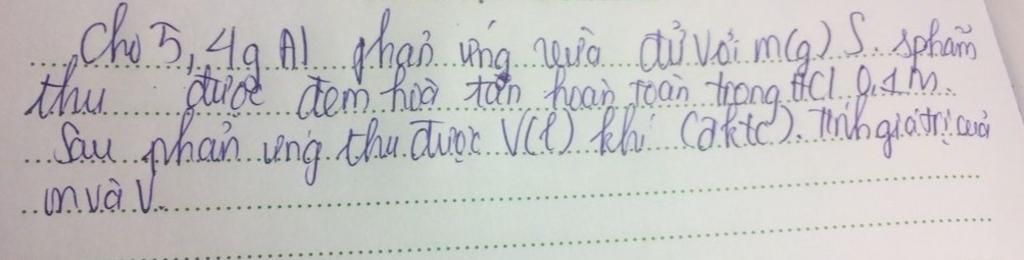 Cho 5,4g Al phản ứng vừa đủ với m(g) S. sphẩm
thu được đem hoà tan hoàn toàn trong HCl 0,1M.
Sau phản ứng thu được V(l) khí (đktc). Tính giá trị của
m và V.